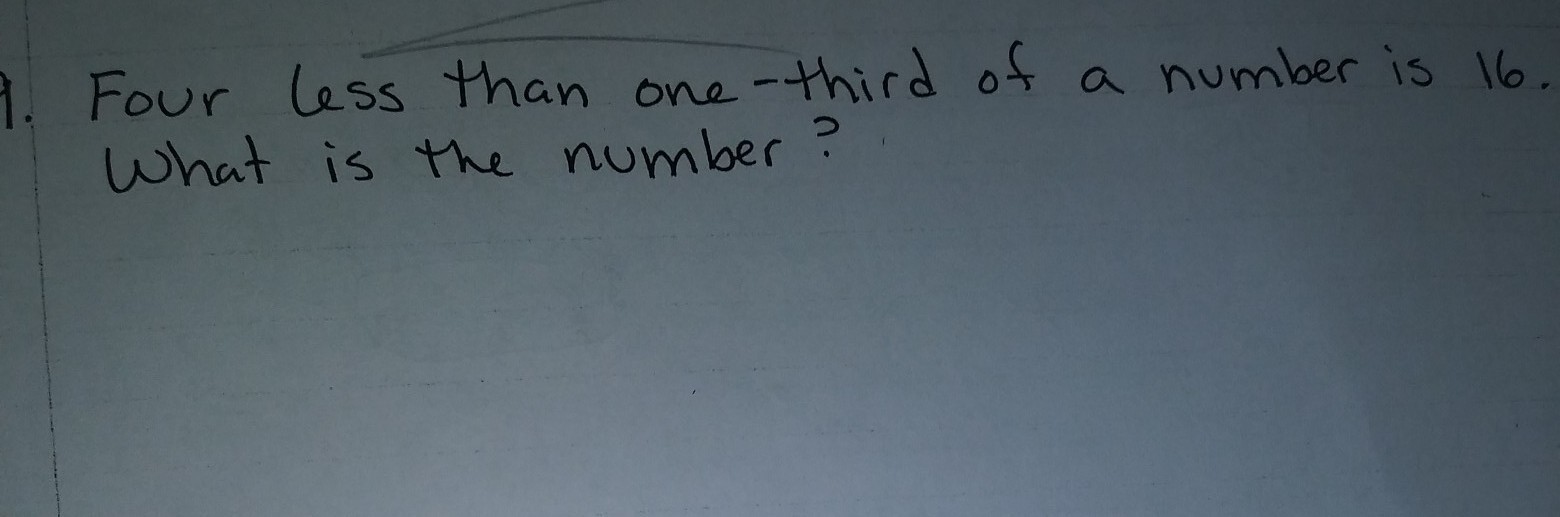 9. Four less than one-third of a number is 16.
What is the number?